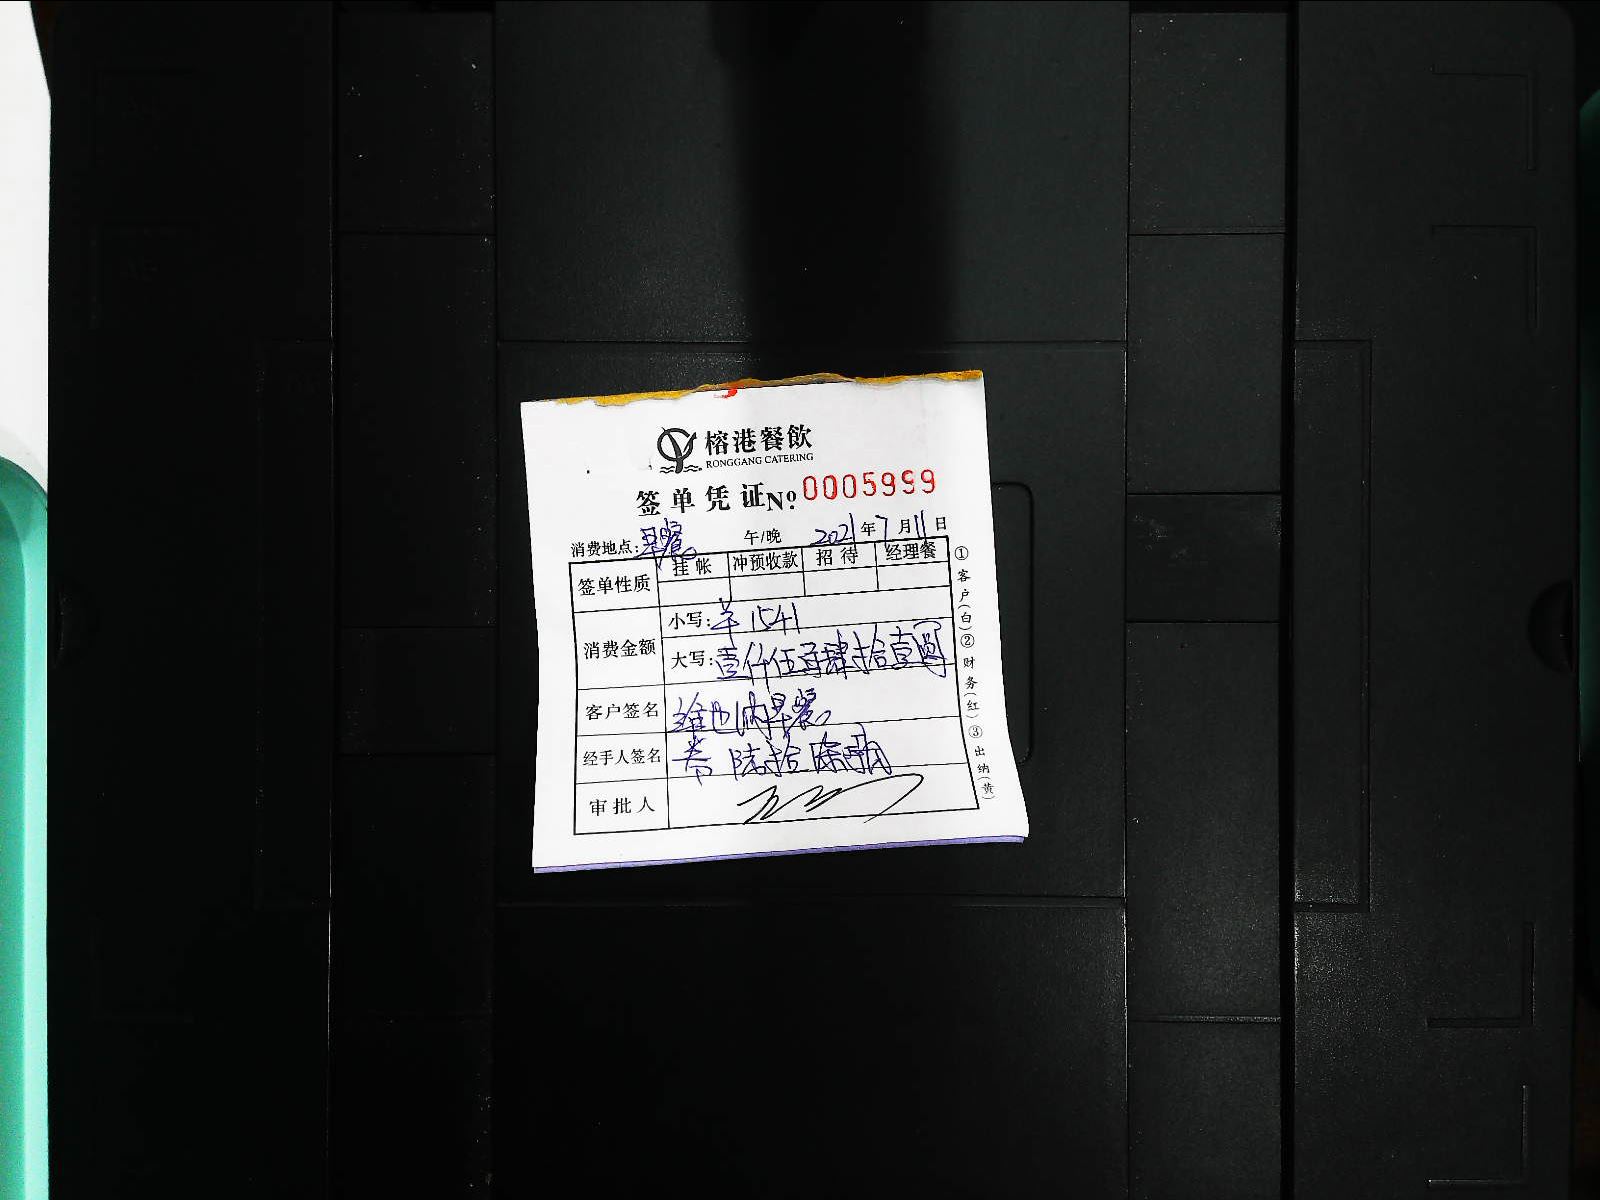 榕港餐飲
RONGGANG CATERING
签单凭证 No. 0005999
消费地点: 早餐 午/晚 2021年7月11日
签单性质 挂帐 冲预收款 招待 经理餐
消费金额 小写: 1541
大写: 壹仟伍百肆拾壹圆
客户签名 维也纳早餐
经手人签名
审批人
①客户(白)②财务(红)③出纳(黄)